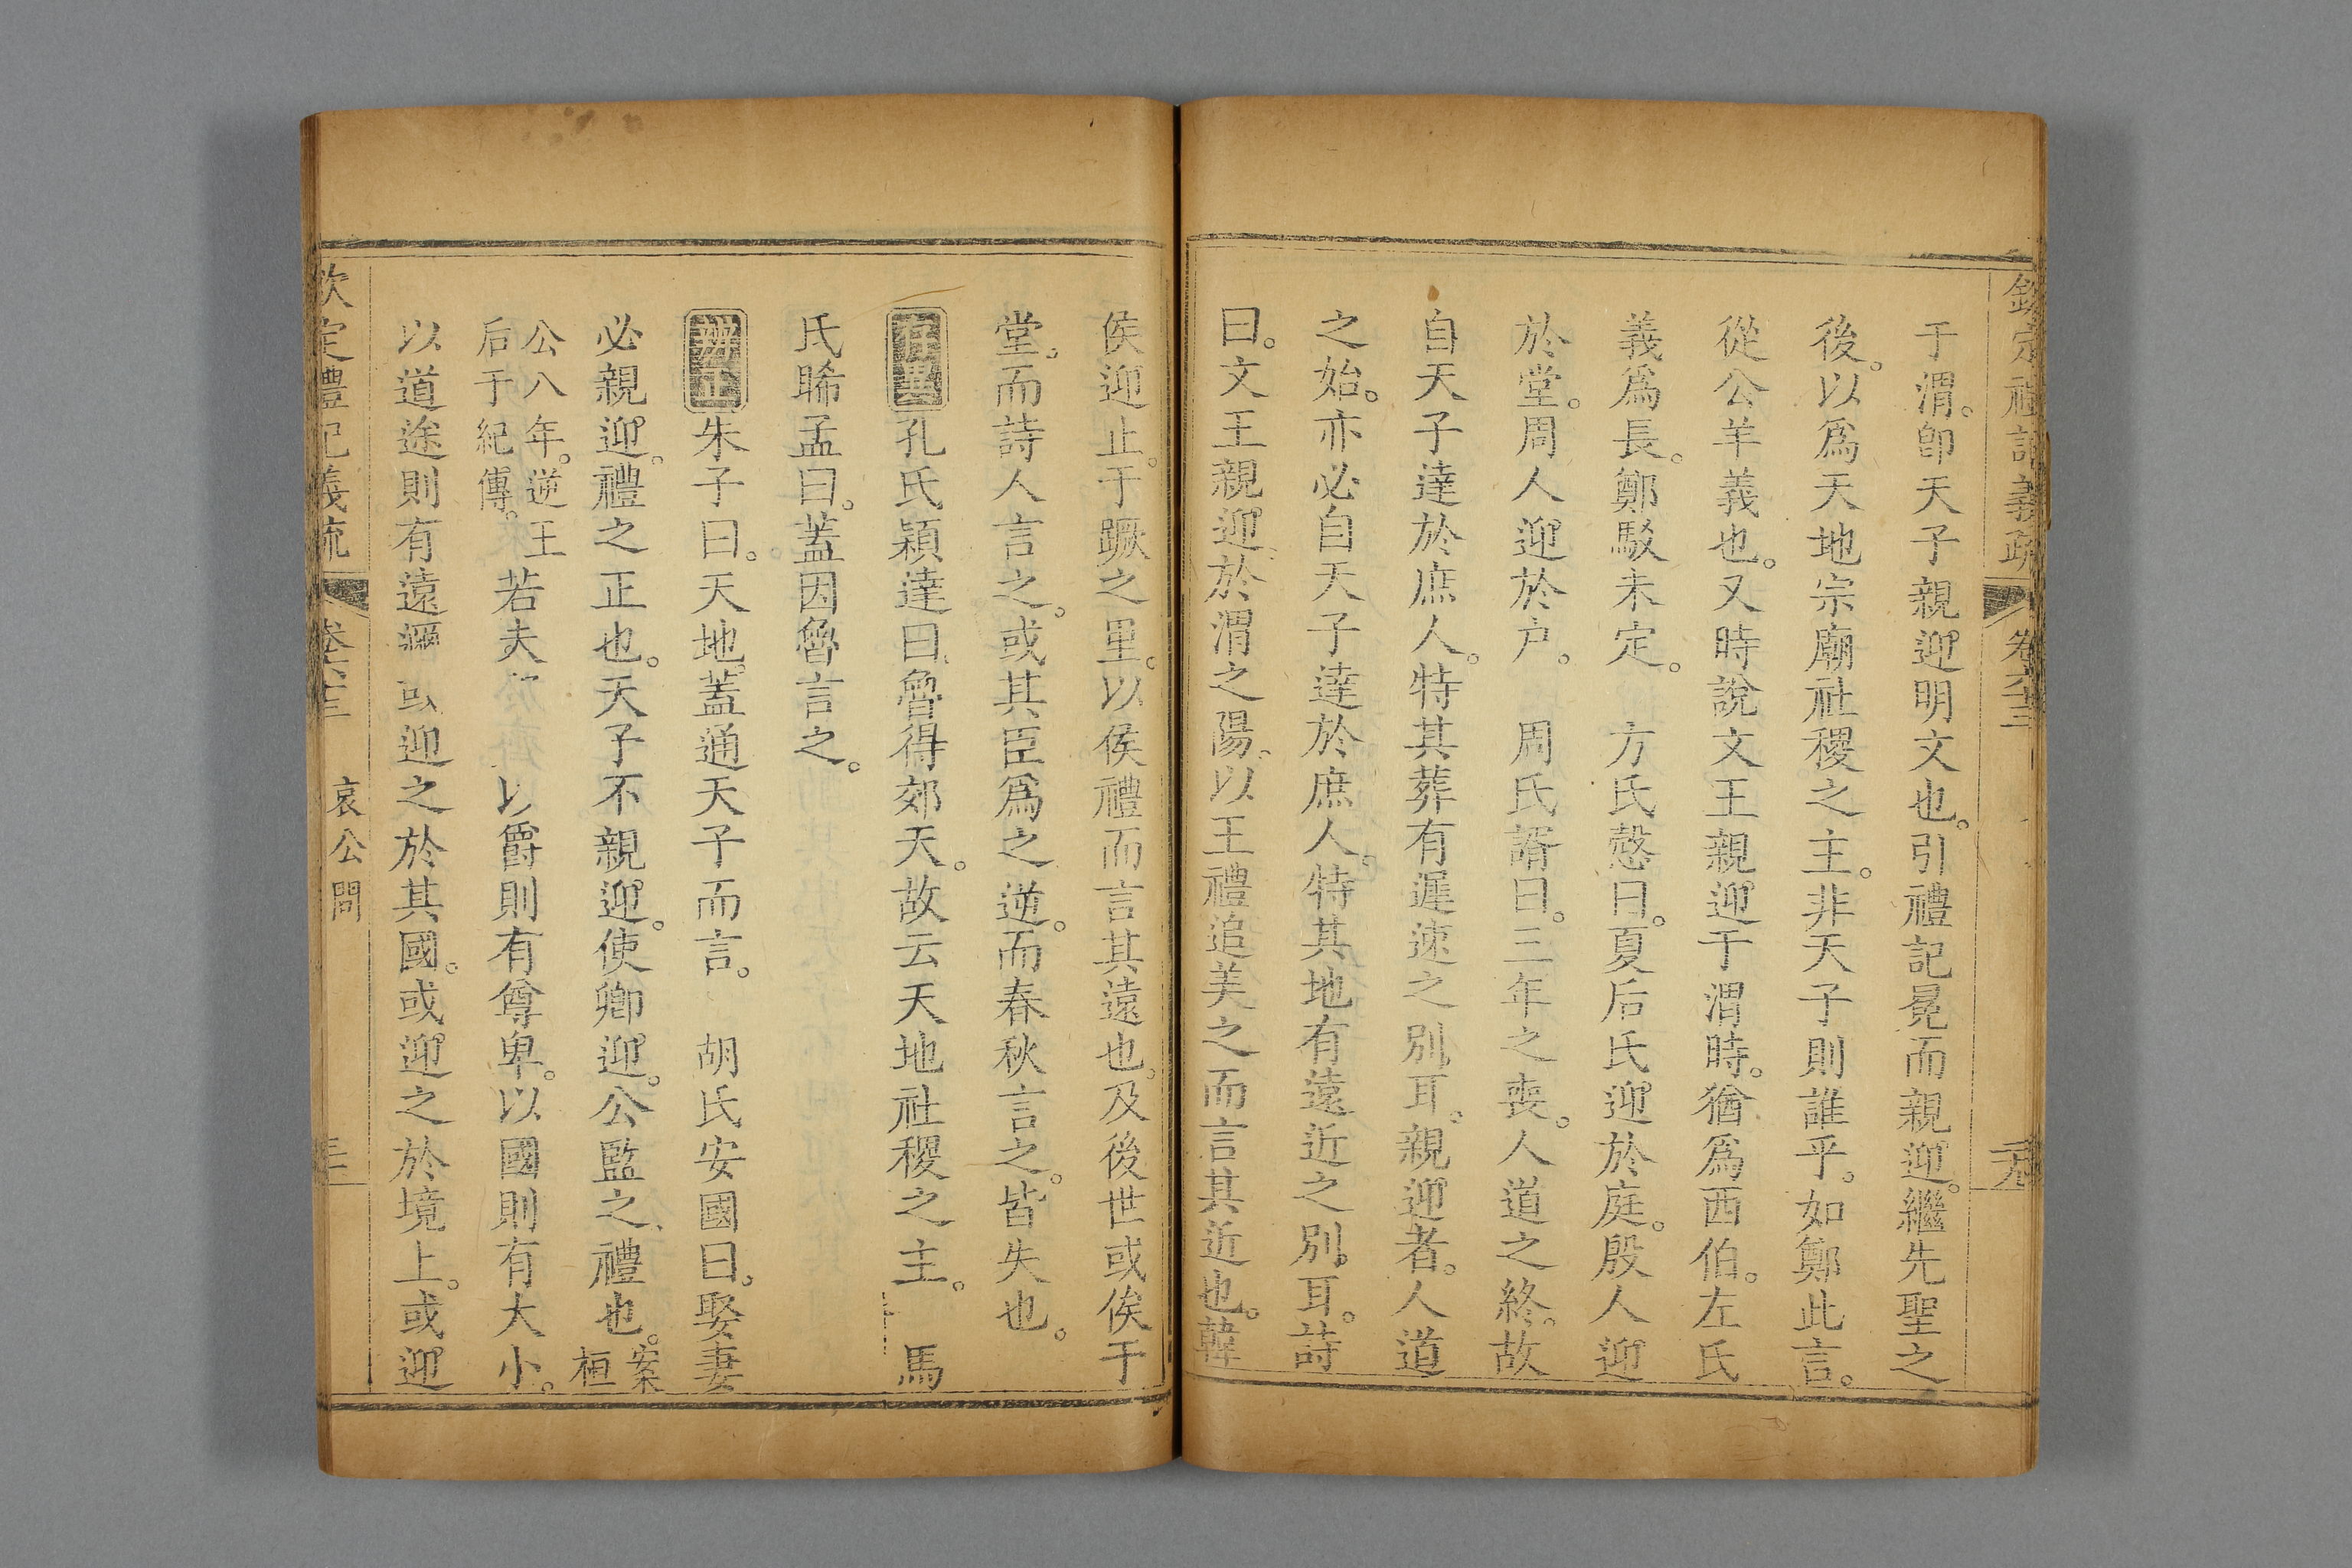 欽定禮記義疏 卷六十三 元
于渭。卽天子親迎明文也。引禮記冕而親迎。繼先聖之
後。以爲天地宗廟社稷之主。非天子則誰乎。如鄭此言。
從公羊義也。又時說文王親迎于渭時。猶爲西伯。左氏
義爲長。鄭駁未定。 方氏慤曰。夏后氏迎於庭。殷人迎
於堂。周人迎於户。 周氏諝曰。三年之喪。人道之終。故
自天子達於庶人。特其葬有遲速之別耳。親迎者。人道
之始。亦必自天子達於庶人。特其地有遠近之別耳。詩
曰。文王親迎於渭之陽。以王禮追美之而言其近也。韓
侯迎止。于蹶之里。以侯禮而言其遠也。及後世或俟于
堂。而詩人言之。或其臣爲之逆。而春秋言之。皆失也。
孔氏穎達曰。魯得郊天。故云天地社稷之主。 馬
氏睎孟曰。蓋因魯言之。
辨正朱子曰。天地。蓋通天子而言。 胡氏安國曰。娶妻
必親迎。禮之正也。天子不親迎。使卿迎。公監之。禮也。案桓
公八年。逆王后于紀傳。若夫 以爵則有尊卑。以國則有大小。
以道途則有遠邇 或迎之於其國。或迎之於境上。或迎
欽定禮記義疏 卷六十三 哀公問 三十